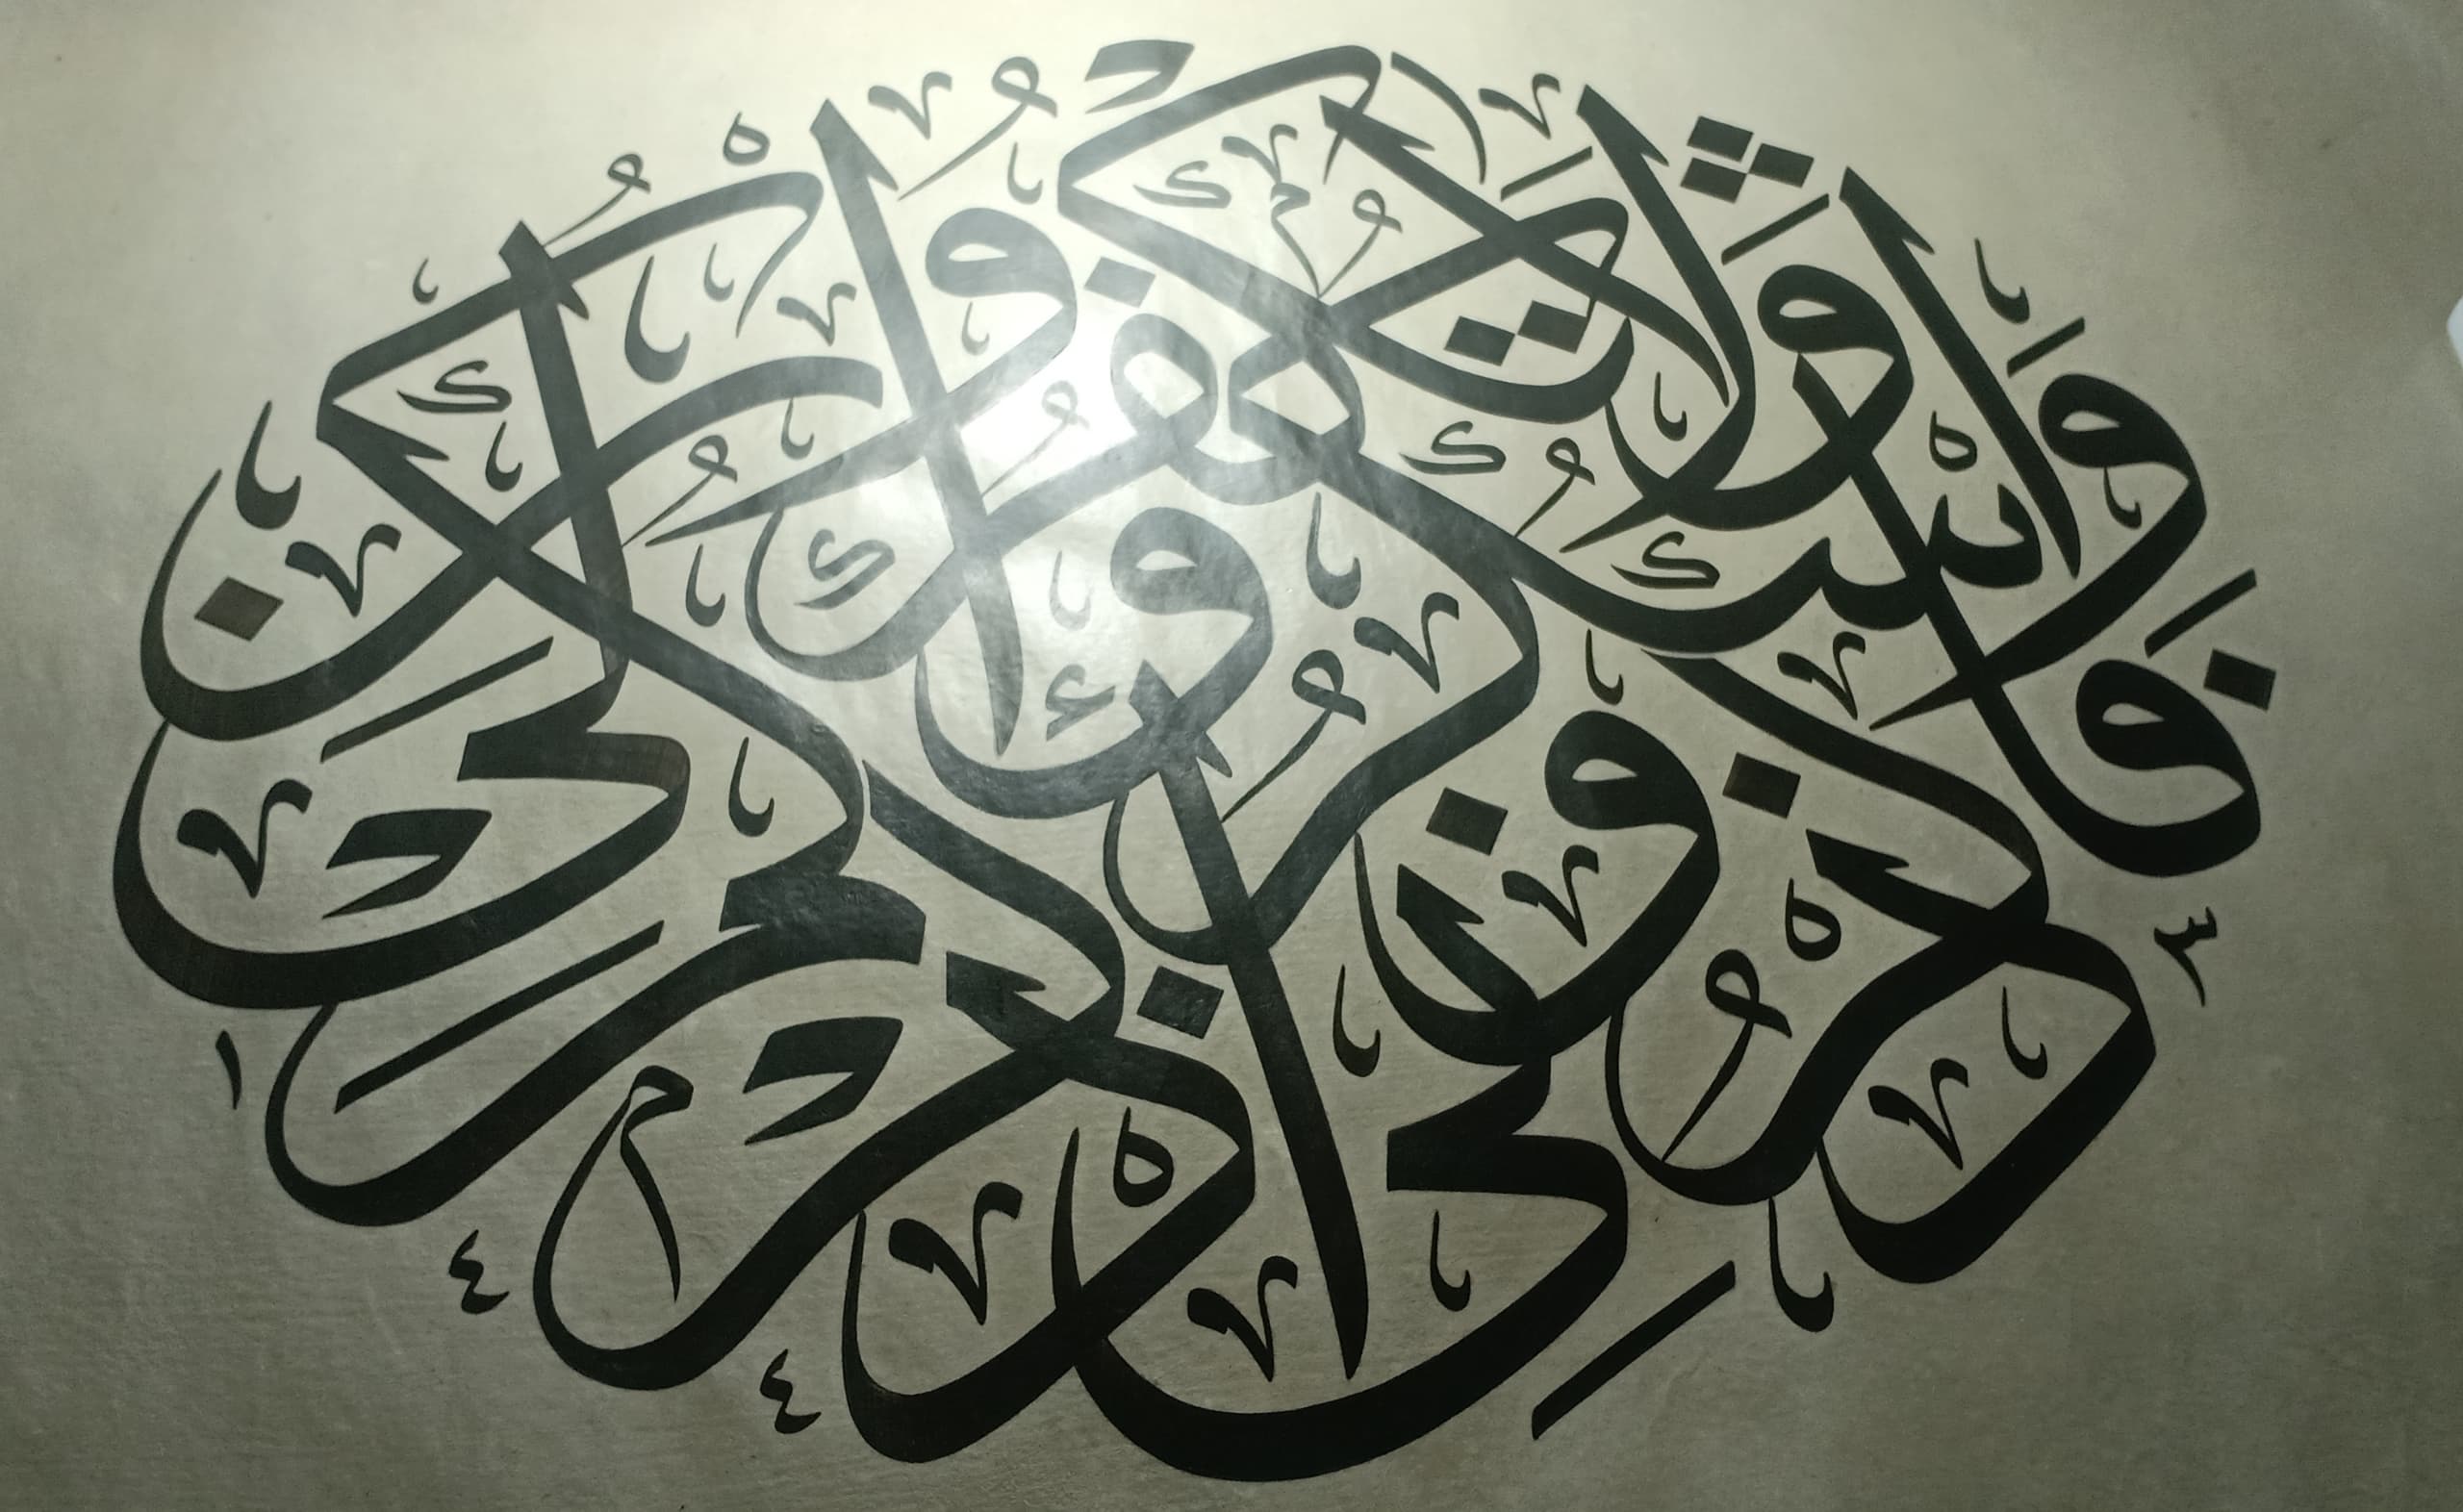 فَاذْكُرُونِي أَذْكُرْكُمْ وَاشْكُرُوا لِي وَلَا تَكْفُرُونِ